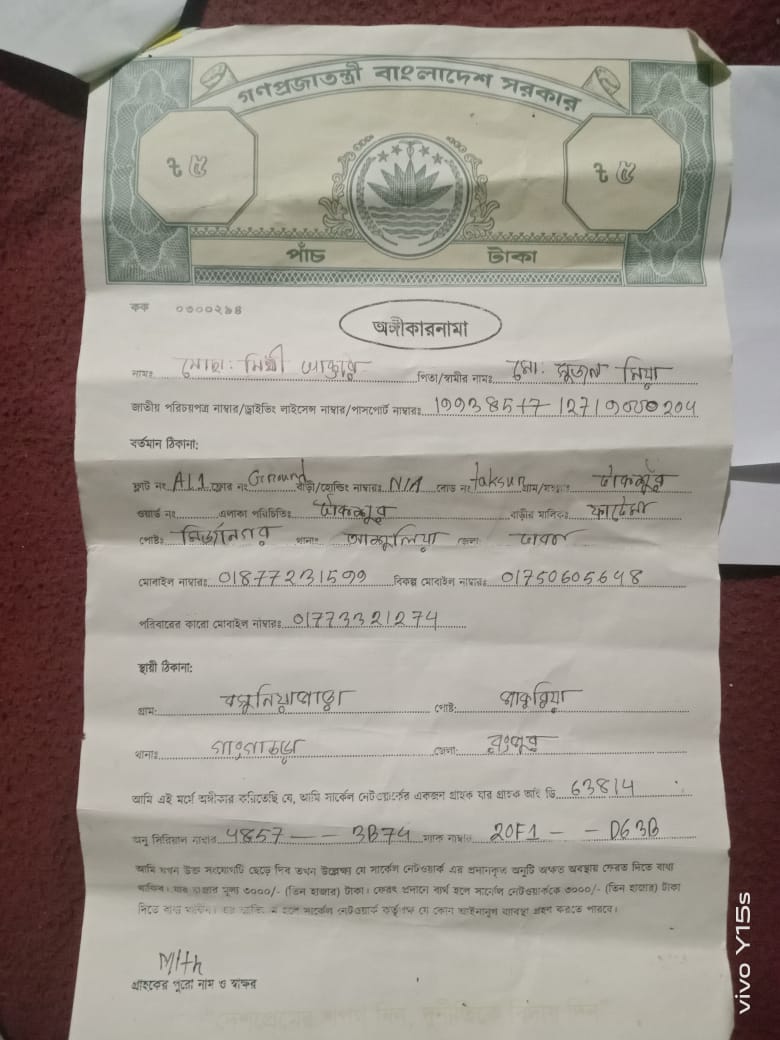 গণপ্রজাতন্ত্রী বাংলাদেশ সরকার
৳ ৫ ৳ ৫
পাঁচ টাকা
কক ০৩০০২৯৪
অঙ্গীকারনামা
নামঃ মোছা: মিথী আক্তার পিতা/স্বামীর নামঃ মো: সুজন মিয়া
জাতীয় পরিচয়পত্র নাম্বার/ড্রাইভিং লাইসেন্স নাম্বার/পাসপোর্ট নাম্বারঃ
বর্তমান ঠিকানা:
ফ্লাট নং AL1 ফ্লোর নং Ground বাড়ী/হোল্ডিং নাম্বারঃ N/A রোড নং taksur গ্রাম/মহল্লাঃ টাকসুর
ওয়ার্ড নং এলাকা পরিচিতিঃ টাকসুর বাড়ীর মালিকঃ ফাতেমা
পোষ্টঃ মির্জানগর থানাঃ আশুলিয়া জেলাঃ ঢাকা
মোবাইল নাম্বারঃ 01877231599 বিকল্প মোবাইল নাম্বারঃ 01750605648
পরিবারের কারো মোবাইল নাম্বারঃ 01773321274
স্থায়ী ঠিকানা:
গ্রাম: বসুনিয়াপাড়া পোষ্ট: পাকুরিয়া
থানাঃ গাংগাচড়া জেলা: রংপুর
আমি এই মর্মে অঙ্গীকার করিতেছি যে, আমি সার্কেল নেটওয়ার্কের একজন গ্রাহক যার গ্রাহক আই ডি 63814
অনু সিরিয়াল নাম্বার 4857 -- 3B74 ম্যাক নাম্বার 20F1 - - D63B
আমি যখন উক্ত সংযোগটি ছেড়ে দিব তখন উল্লেখ্য যে সার্কেল নেটওয়ার্ক এর প্রদানকৃত অনুটি অক্ষত অবস্থায় ফেরত দিতে বাধ্য
থাকিব। যার বাজার মূল্য ৩০০০/- (তিন হাজার) টাকা। ফেরৎ প্রদানে ব্যর্থ হলে সার্কেল নেটওয়ার্ককে ৩০০০/- (তিন হাজার) টাকা
দিতে বাধ্য থাকিব। হলে সার্কেল নেটওয়ার্ক কর্তৃপক্ষ যে কোন আইনানুগ ব্যবস্থা গ্রহণ করতে পারবে।
Mith
গ্রাহকের পুরো নাম ও স্বাক্ষর
vivo Y15s